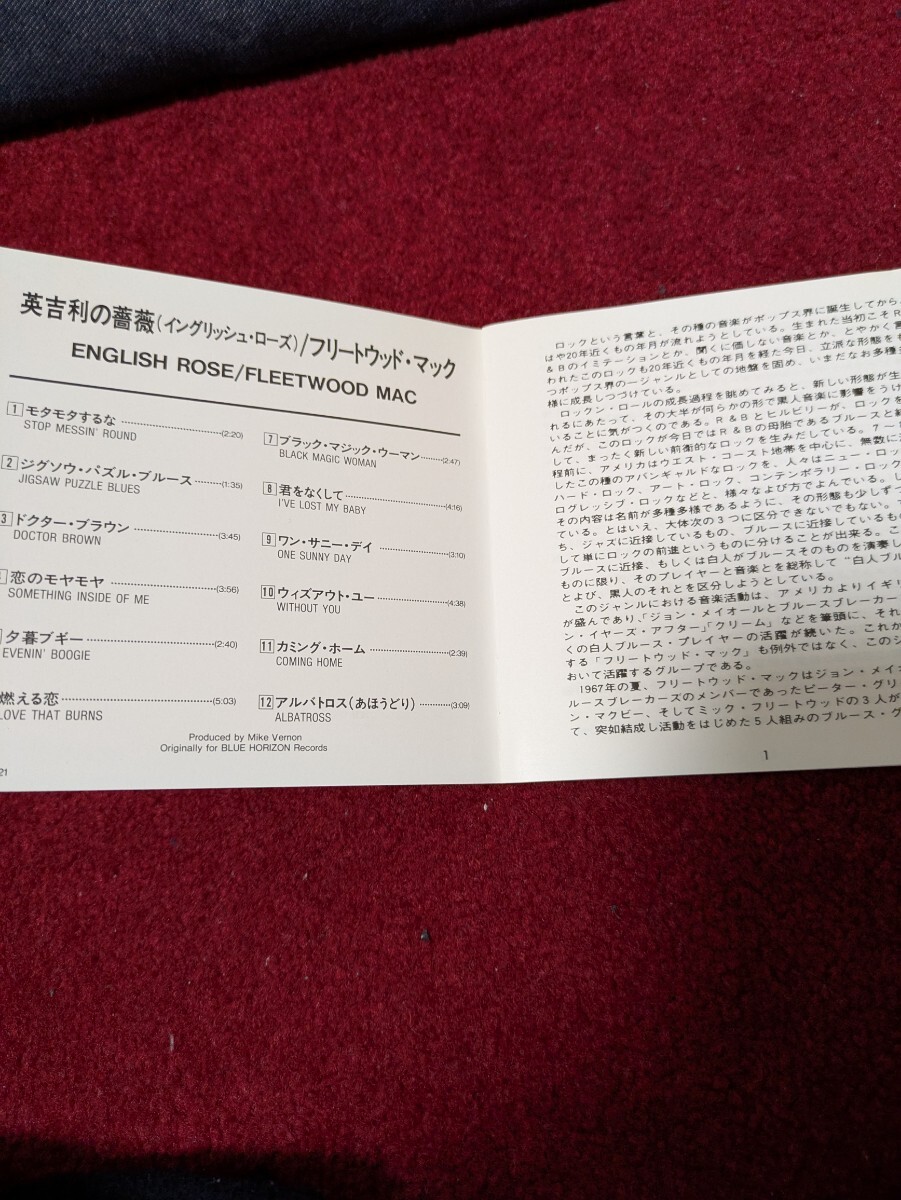 英吉利の薔薇(イングリッシュ・ローズ)/フリートウッド・マック
ENGLISH ROSE/FLEETWOOD MAC
1 モタモタするな (2:20)
STOP MESSIN' ROUND
2 ジグソウ・パズル・ブルース (1:35)
JIGSAW PUZZLE BLUES
3 ドクター・ブラウン (3:45)
DOCTOR BROWN
恋のモヤモヤ (3:56)
SOMETHING INSIDE OF ME
夕暮ブギー (2:40)
EVENIN' BOOGIE
燃える恋 (5:03)
LOVE THAT BURNS
7 ブラック・マジック・ウーマン (2:47)
BLACK MAGIC WOMAN
8 君をなくして (4:16)
I'VE LOST MY BABY
9 ワン・サニー・デイ (3:10)
ONE SUNNY DAY
10 ウィズアウト・ユー (4:38)
WITHOUT YOU
11 カミング・ホーム (2:39)
COMING HOME
12 アルバトロス(あほうどり) (3:09)
ALBATROSS
Produced by Mike Vernon
Originally for BLUE HORIZON Records
21
ロックという言葉と、その種の音楽がポップス界に誕生してから、
はや20年近くもの年月が流れようとしている。生まれた当初こそR
&Bのイミテーションとか、聞くに価しない音楽とか、とやかく言
われたこのロックも20年近くもの年月を経た今日、立派な形態をも
つポップス界の一ジャンルとしての地盤を固め、いまだなお多種
様に成長しつづけている。
ロックン・ロールの成長過程を眺めてみると、新しい形態が生
れるにあたって、その大半が何らかの形で黒人音楽に影響をうけ
いることに気がつくのである。R&Bとヒルビリーが、ロックを
んだが、このロックが今日ではR&Bの母胎であるブルースと結
して、まったく新しい前衛的なロックを生みだしている。7〜
程前に、アメリカはウエスト・コースト地帯を中心に、無数に
したこの種のアバンギャルドなロックを、人々はニュー・ロック
ハード・ロック、アート・ロック、コンテンポラリー・ロック
ログレッシブ・ロックなどと、様々なよび方でよんでいる。し
その内容は名前が多種多様であるように、その形態も少しずつ
ている。とはいえ、大体次の3つに区分できないでもない。
ち、ジャズに近接しているもの、ブルースに近接しているもの
して単にロックの前進というものに分けることが出来る。こ
ブルースに近接、もしくは白人がブルースそのものを演奏し
ものに限り、そのプレイヤーと音楽とを総称して“白人ブル
とよび、黒人のそれとを区分しようとしている。
このジャンルにおける音楽活動は、アメリカよりイギリ
が盛んであり、「ジョン・メイオールとブルースブレーカー
ン・イヤーズ・アフター」「クリーム」などを筆頭に、それ
くの白人ブルース・プレイヤーの活躍が続いた。これか
する「フリートウッド・マック」も例外ではなく、このジ
おいて活躍するグループである。
1967年の夏、フリートウッド・マックはジョン・メイオ
ルースブレーカーズのメンバーであったピーター・グリ
ン・マクビー、そしてミック・フリートウッドの3人が
て、突如結成し活動をはじめた5人組みのブルース・グ
1